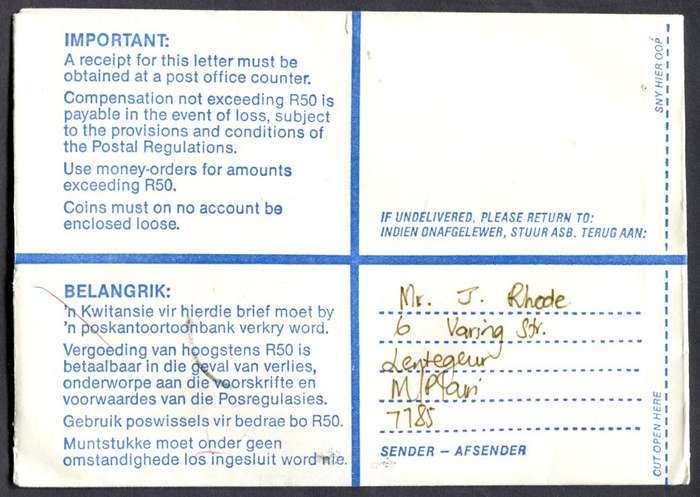 IMPORTANT:
A receipt for this letter must be
obtained at a post office counter.
Compensation not exceeding R50 is
payable in the event of loss, subject
to the provisions and conditions of
the Postal Regulations.
Use money-orders for amounts
exceeding R50.
Coins must on no account be
enclosed loose.
SNY HIER OOP
IF UNDELIVERED, PLEASE RETURN TO:
INDIEN ONAFGELEWER, STUUR ASB. TERUG AAN:
BELANGRIK:
'n Kwitansie vir hierdie brief moet by
'n poskantoortoonbank verkry word.
Vergoeding van hoogstens R50 is
betaalbaar in die geval van verlies,
onderworpe aan die voorskrifte en
voorwaardes van die Posregulasies.
Gebruik poswissels vir bedrae bo R50.
Muntstukke moet onder geen
omstandighede los ingesluit word nie.
Mr. J. Rhode
6 Varing Str.
Lentegeur
M/Plain
7785
SENDER – AFSENDER
CUT OPEN HERE